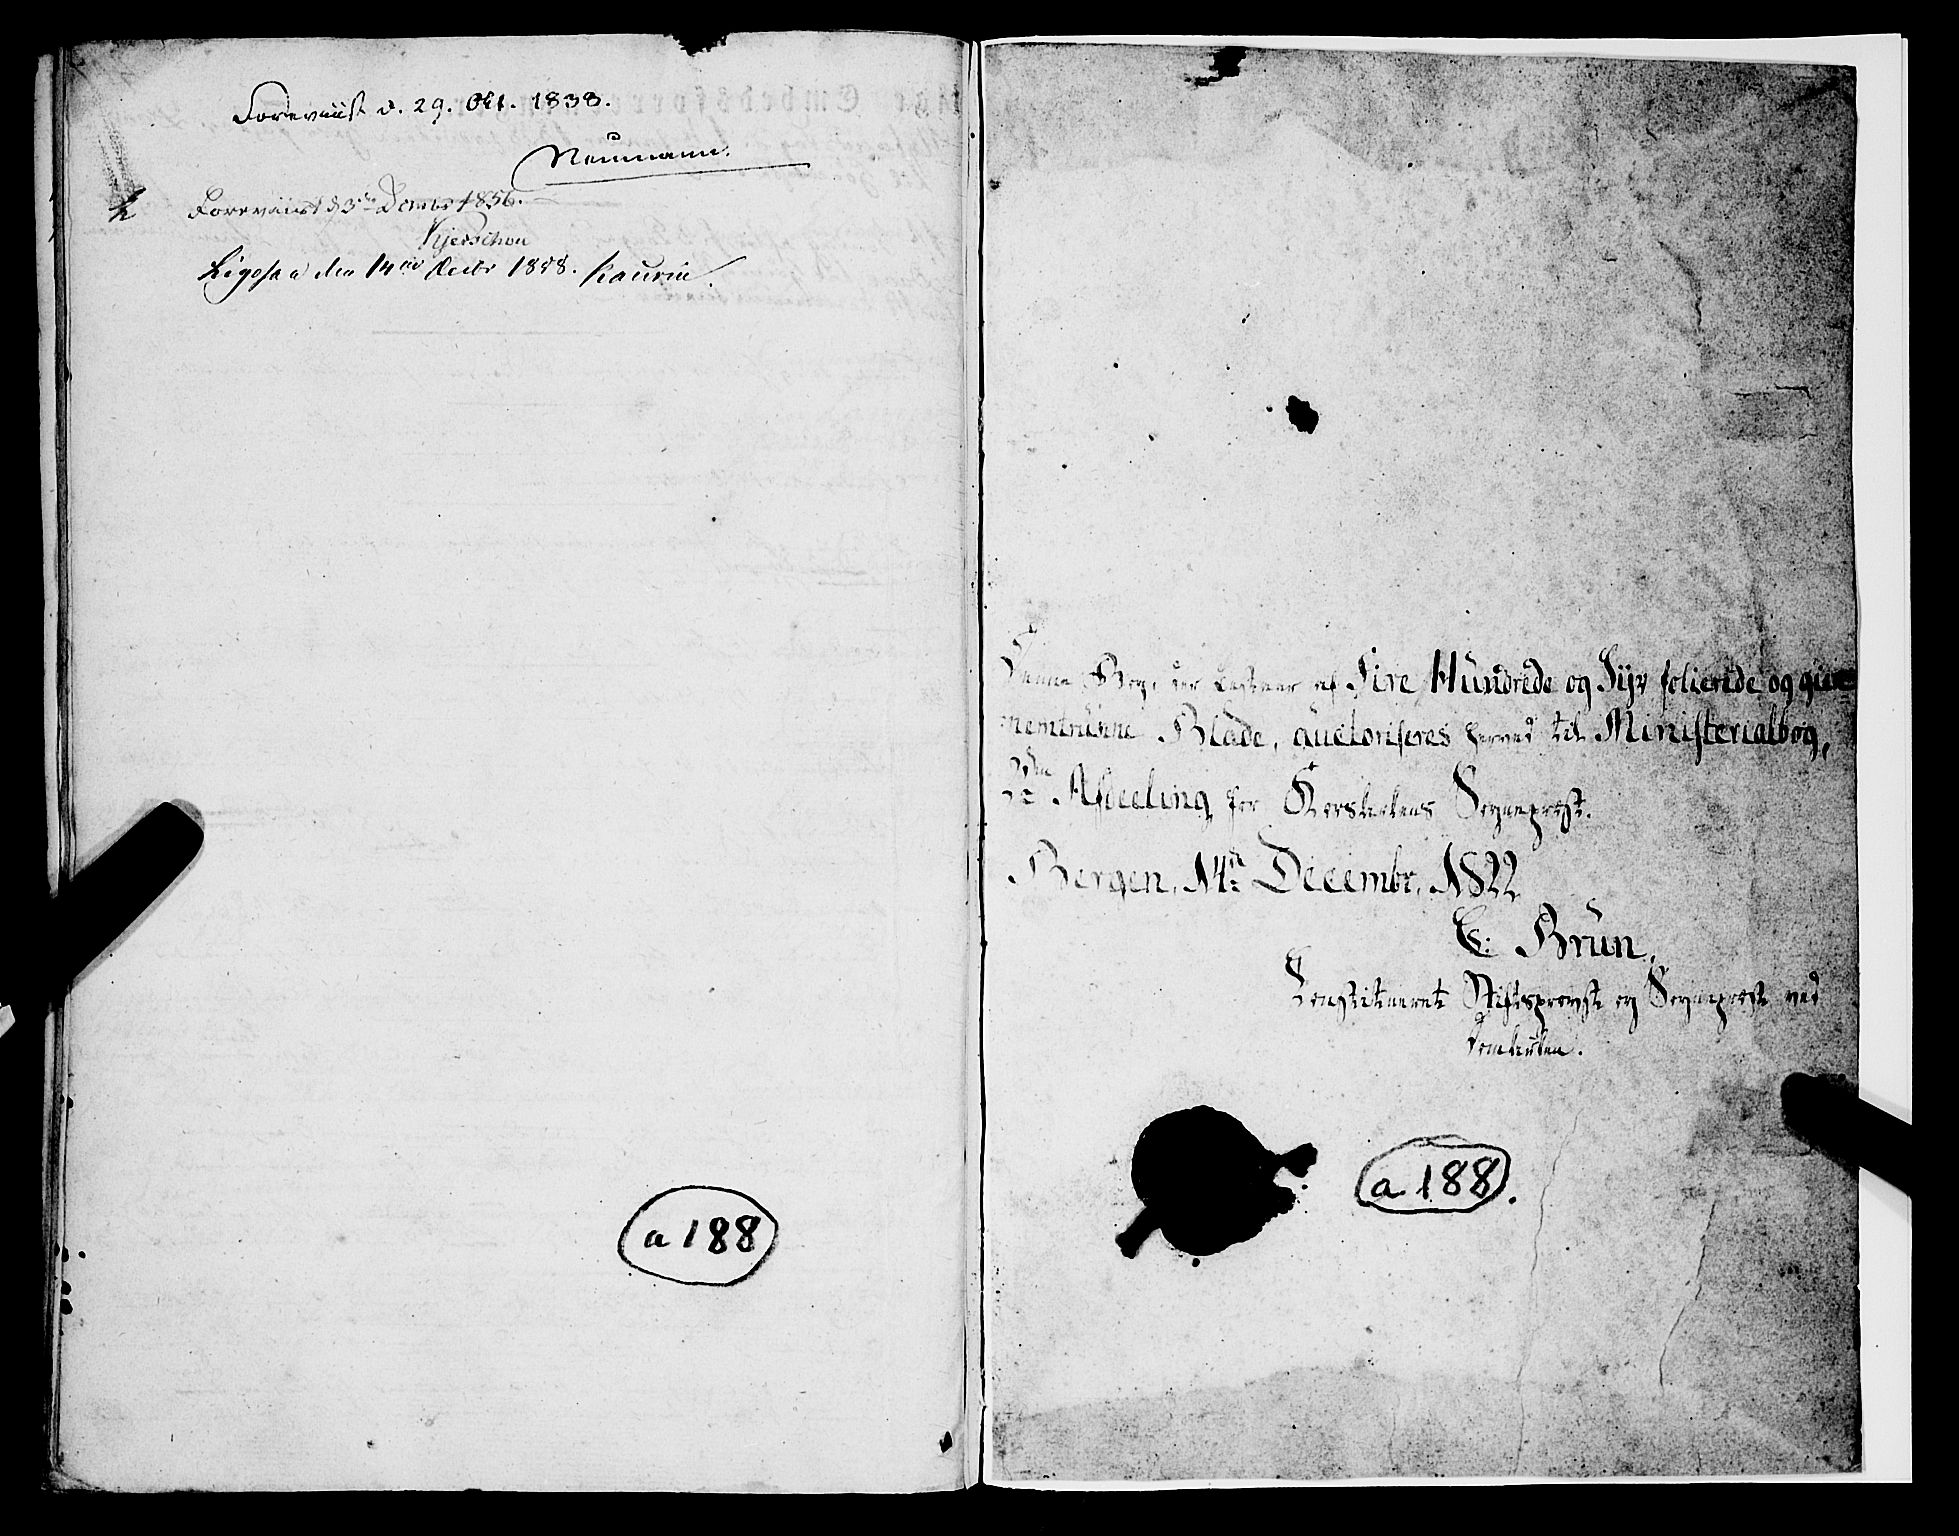 Foreviist d. 29. Oct. 1838.
Neumann.
Foreviist d 3die Decmbr 1856.
Kjerschou
Ligesaa den 14de Decbr 1858. Kaurin.
a 188
Denne Bog, der bestaaer af Fire Hundrede og Syv folierede og gien-
nemtrukne Blade, auctoriseres herved til Ministerialbog,
Afdeeling for Korskirkens Sognepræst.
Bergen, 14de Decembr. 1822
C. Brun,
Constitueret Stiftsprovst og Sognepræst ved
Domkirken.
a 188.